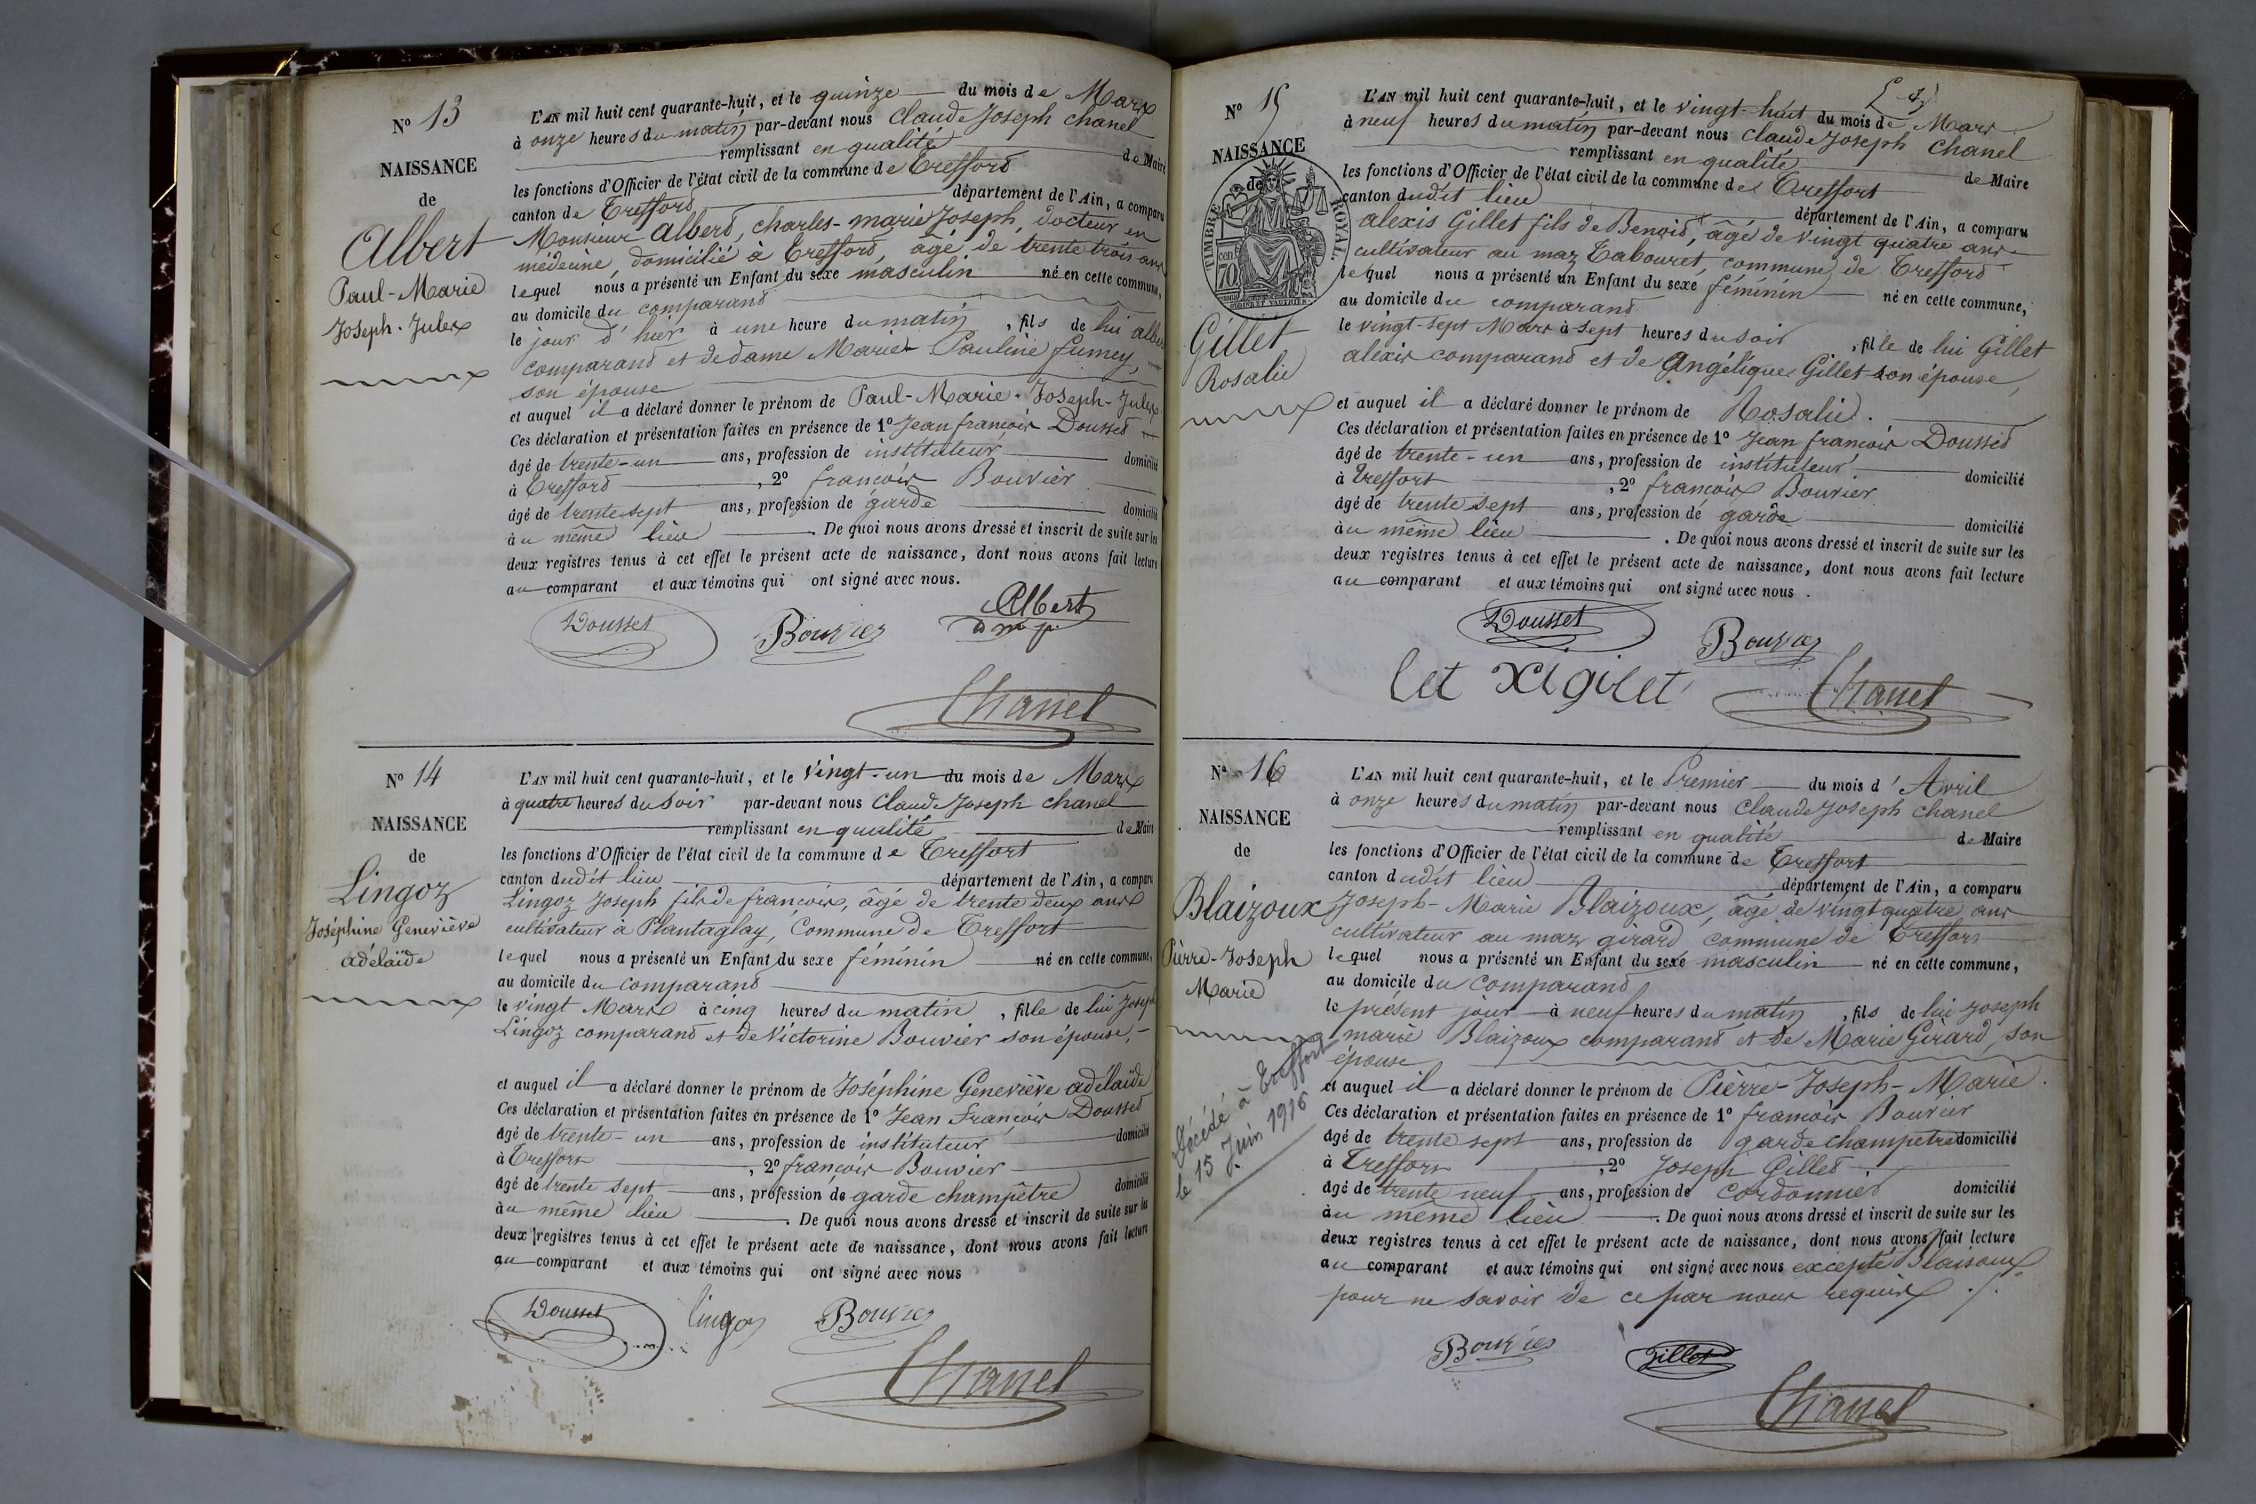 Nº 13
NAISSANCE
de
Albert
Paul-Marie
Joseph-Jules
L'AN mil huit cent quarante-huit, et le quinze du mois de Mars
à onze heures du matin par-devant nous Claude Joseph Chanel
remplissant en qualité de Maire
les fonctions d'Officier de l'état civil de la commune de Treffort
canton de Treffort département de l'Ain, a comparu
Monsieur Albert, Charles-marie Joseph, docteur en
médecine, domicilié à Treffort, âgé de trente trois ans
lequel nous a présenté un Enfant du sexe masculin né en cette commune,
au domicile du comparant
le jour d'hier à une heure du matin, fils de lui albert
comparant et de dame Marie Pauline fumey,
son épouse
et auquel il a déclaré donner le prénom de Paul-Marie-Joseph-Jules
Ces déclaration et présentation faites en présence de 1º Jean françois Dousset
âgé de trente-un ans, profession de instituteur domicilié
à Treffort, 2º françois Bouvier
âgé de trente sept ans, profession de garde domicilié
au même lieu. De quoi nous avons dressé et inscrit de suite sur les
deux registres tenus à cet effet le présent acte de naissance, dont nous avons fait lecture
au comparant et aux témoins qui ont signé avec nous.
Dousset Bouvier Albert
d m p.
Chanel
Nº 14
NAISSANCE
de
Lingoz
Joséphine Geneviève
adélaïde
L'AN mil huit cent quarante-huit, et le Vingt-un du mois de Mars
à quatre heures du soir par-devant nous Claude Joseph Chanel
remplissant en qualité de Maire
les fonctions d'Officier de l'état civil de la commune de Treffort
canton dudit lieu département de l'Ain, a comparu
Lingoz Joseph fils de françois, âgé de trente deux ans
cultivateur à Plantaglay, Commune de Treffort
lequel nous a présenté un Enfant du sexe féminin né en cette commune,
au domicile du comparant
le vingt Mars à cinq heures du matin, fille de lui Joseph
Lingoz comparant et de Victorine Bouvier son épouse,
et auquel il a déclaré donner le prénom de Joséphine Geneviève adélaïde
Ces déclaration et présentation faites en présence de 1º Jean François Dousset
âgé de trente-un ans, profession de instituteur domicilié
à Treffort, 2º françois Bouvier
âgé de trente sept ans, profession de garde champêtre domicilié
au même lieu. De quoi nous avons dressé et inscrit de suite sur les
deux registres tenus à cet effet le présent acte de naissance, dont nous avons fait lecture
au comparant et aux témoins qui ont signé avec nous
Dousset lingoz Bouvier
Chanel
Nº 15
NAISSANCE
de
TIMBRE ROYAL
cen 70
Gillet
Rosalie
L'AN mil huit cent quarante-huit, et le vingt-huit du mois de Mars
à neuf heures du matin par-devant nous Claude Joseph Chanel
remplissant en qualité de Maire
les fonctions d'Officier de l'état civil de la commune de Treffort
canton dudit lieu département de l'Ain, a comparu
alexis Gillet fils de Benoit, âgé de vingt quatre ans
cultivateur au maz Tabouret, commune de Treffort
lequel nous a présenté un Enfant du sexe féminin né en cette commune,
au domicile du comparant
le vingt-sept Mars à sept heures du soir, fille de lui Gillet
alexis comparant et de Angélique Gillet son épouse,
et auquel il a déclaré donner le prénom de Rosalie.
Ces déclaration et présentation faites en présence de 1º Jean françois Dousset
âgé de trente-un ans, profession de instituteur domicilié
à Treffort, 2º françois Bouvier
âgé de trente sept ans, profession de garde domicilié
au même lieu. De quoi nous avons dressé et inscrit de suite sur les
deux registres tenus à cet effet le présent acte de naissance, dont nous avons fait lecture
au comparant et aux témoins qui ont signé avec nous.
Dousset Bouvier
Chanel
Nº 16
NAISSANCE
de
Blaizoux
Pierre-Joseph
Marie
Décédé à Treffort
le 15 Juin 1916
L'AN mil huit cent quarante-huit, et le Premier du mois d'Avril
à onze heures du matin par-devant nous Claude Joseph Chanel
remplissant en qualité de Maire
les fonctions d'Officier de l'état civil de la commune de Treffort
canton dudit lieu département de l'Ain, a comparu
Joseph-Marie Blaizoux, âgé de vingt quatre ans
cultivateur au maz girard commune de Treffort
lequel nous a présenté un Enfant du sexe masculin né en cette commune,
au domicile du comparant
le présent jour à neuf heures du matin, fils de lui Joseph
marie Blaizoux comparant et de Marie Girard, son
épouse
et auquel il a déclaré donner le prénom de Pierre-Joseph-Marie.
Ces déclaration et présentation faites en présence de 1º françois Bouvier
âgé de trente sept ans, profession de garde champêtre domicilié
à Treffort, 2º Joseph Gillet
âgé de trente neuf ans, profession de cordonnier domicilié
au même lieu. De quoi nous avons dressé et inscrit de suite sur les
deux registres tenus à cet effet le présent acte de naissance, dont nous avons fait lecture
au comparant et aux témoins qui ont signé avec nous excepté Blaisoux
pour ne savoir de ce par nous requis
Bouvier Gillet
Chanel